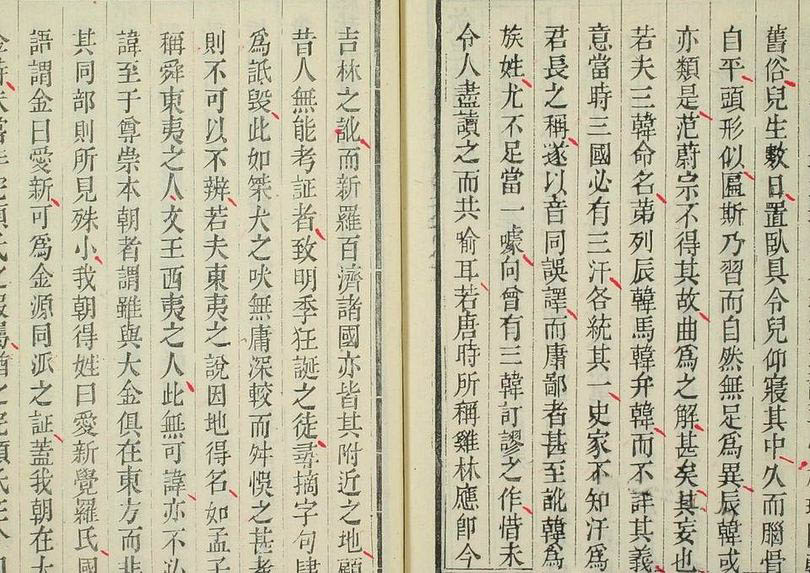 舊俗兒生數日置臥具令兒仰寢其中久而腦骨
自平頭形似匾斯乃習而自然無足爲異辰韓或
亦類是范蔚宗不得其故曲爲之解甚矣其妄也
若夫三韓命名第列辰韓馬韓弁韓而不詳其義
意當時三國必有三汗各統其一史家不知汗爲
君長之稱遂以音同誤譯而庸鄙者甚至訛韓爲
族姓尤不足當一噱向曾有三韓訂謬之作惜未
令人盡讀之而共喻耳若唐時所稱雞林應即今
吉林之訛而新羅百濟諸國亦皆其附近之地顧
昔人無能考証者致明季狂誕之徒尋摘字句肆
爲詆毀此如桀犬之吠無庸深較而舛悞之甚者
則不可以不辨若夫東夷之說因地得名如孟子
稱舜東夷之人文王西夷之人此無可諱亦不必
諱至于尊崇本朝者謂雖與大金俱在東方而非
其同部則所見殊小我朝得姓曰愛新覺羅氏國
語謂金曰愛新可爲金源同派之証蓋我朝在大